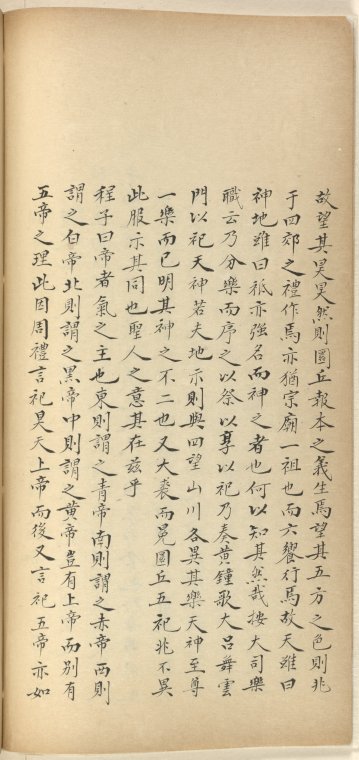 故望其昊昊然則圜丘報本之義生焉望其五方之色則兆
于四郊之禮作焉亦猶宗廟 祖也而六饗行焉故天雖曰
神地雖曰祇亦強名而神之者也何以知其然哉按大司樂
職云乃分樂而序之以祭以享以祀乃奏黃鐘歌大呂舞雲
門以祀天神若夫地示則與四望山川各異其樂天神至尊
一樂而已明其神之不二也又大裘而冕圜丘五祀兆不異
此服示其同也聖人之意其在茲乎
程子曰帝者氣之主也東則謂之青帝南則謂之赤帝西則
謂之白帝北則謂之黑帝中則謂之黃帝豈有上帝而別有
五帝之理此因周禮言祀昊天上帝而後又言祀五帝亦如